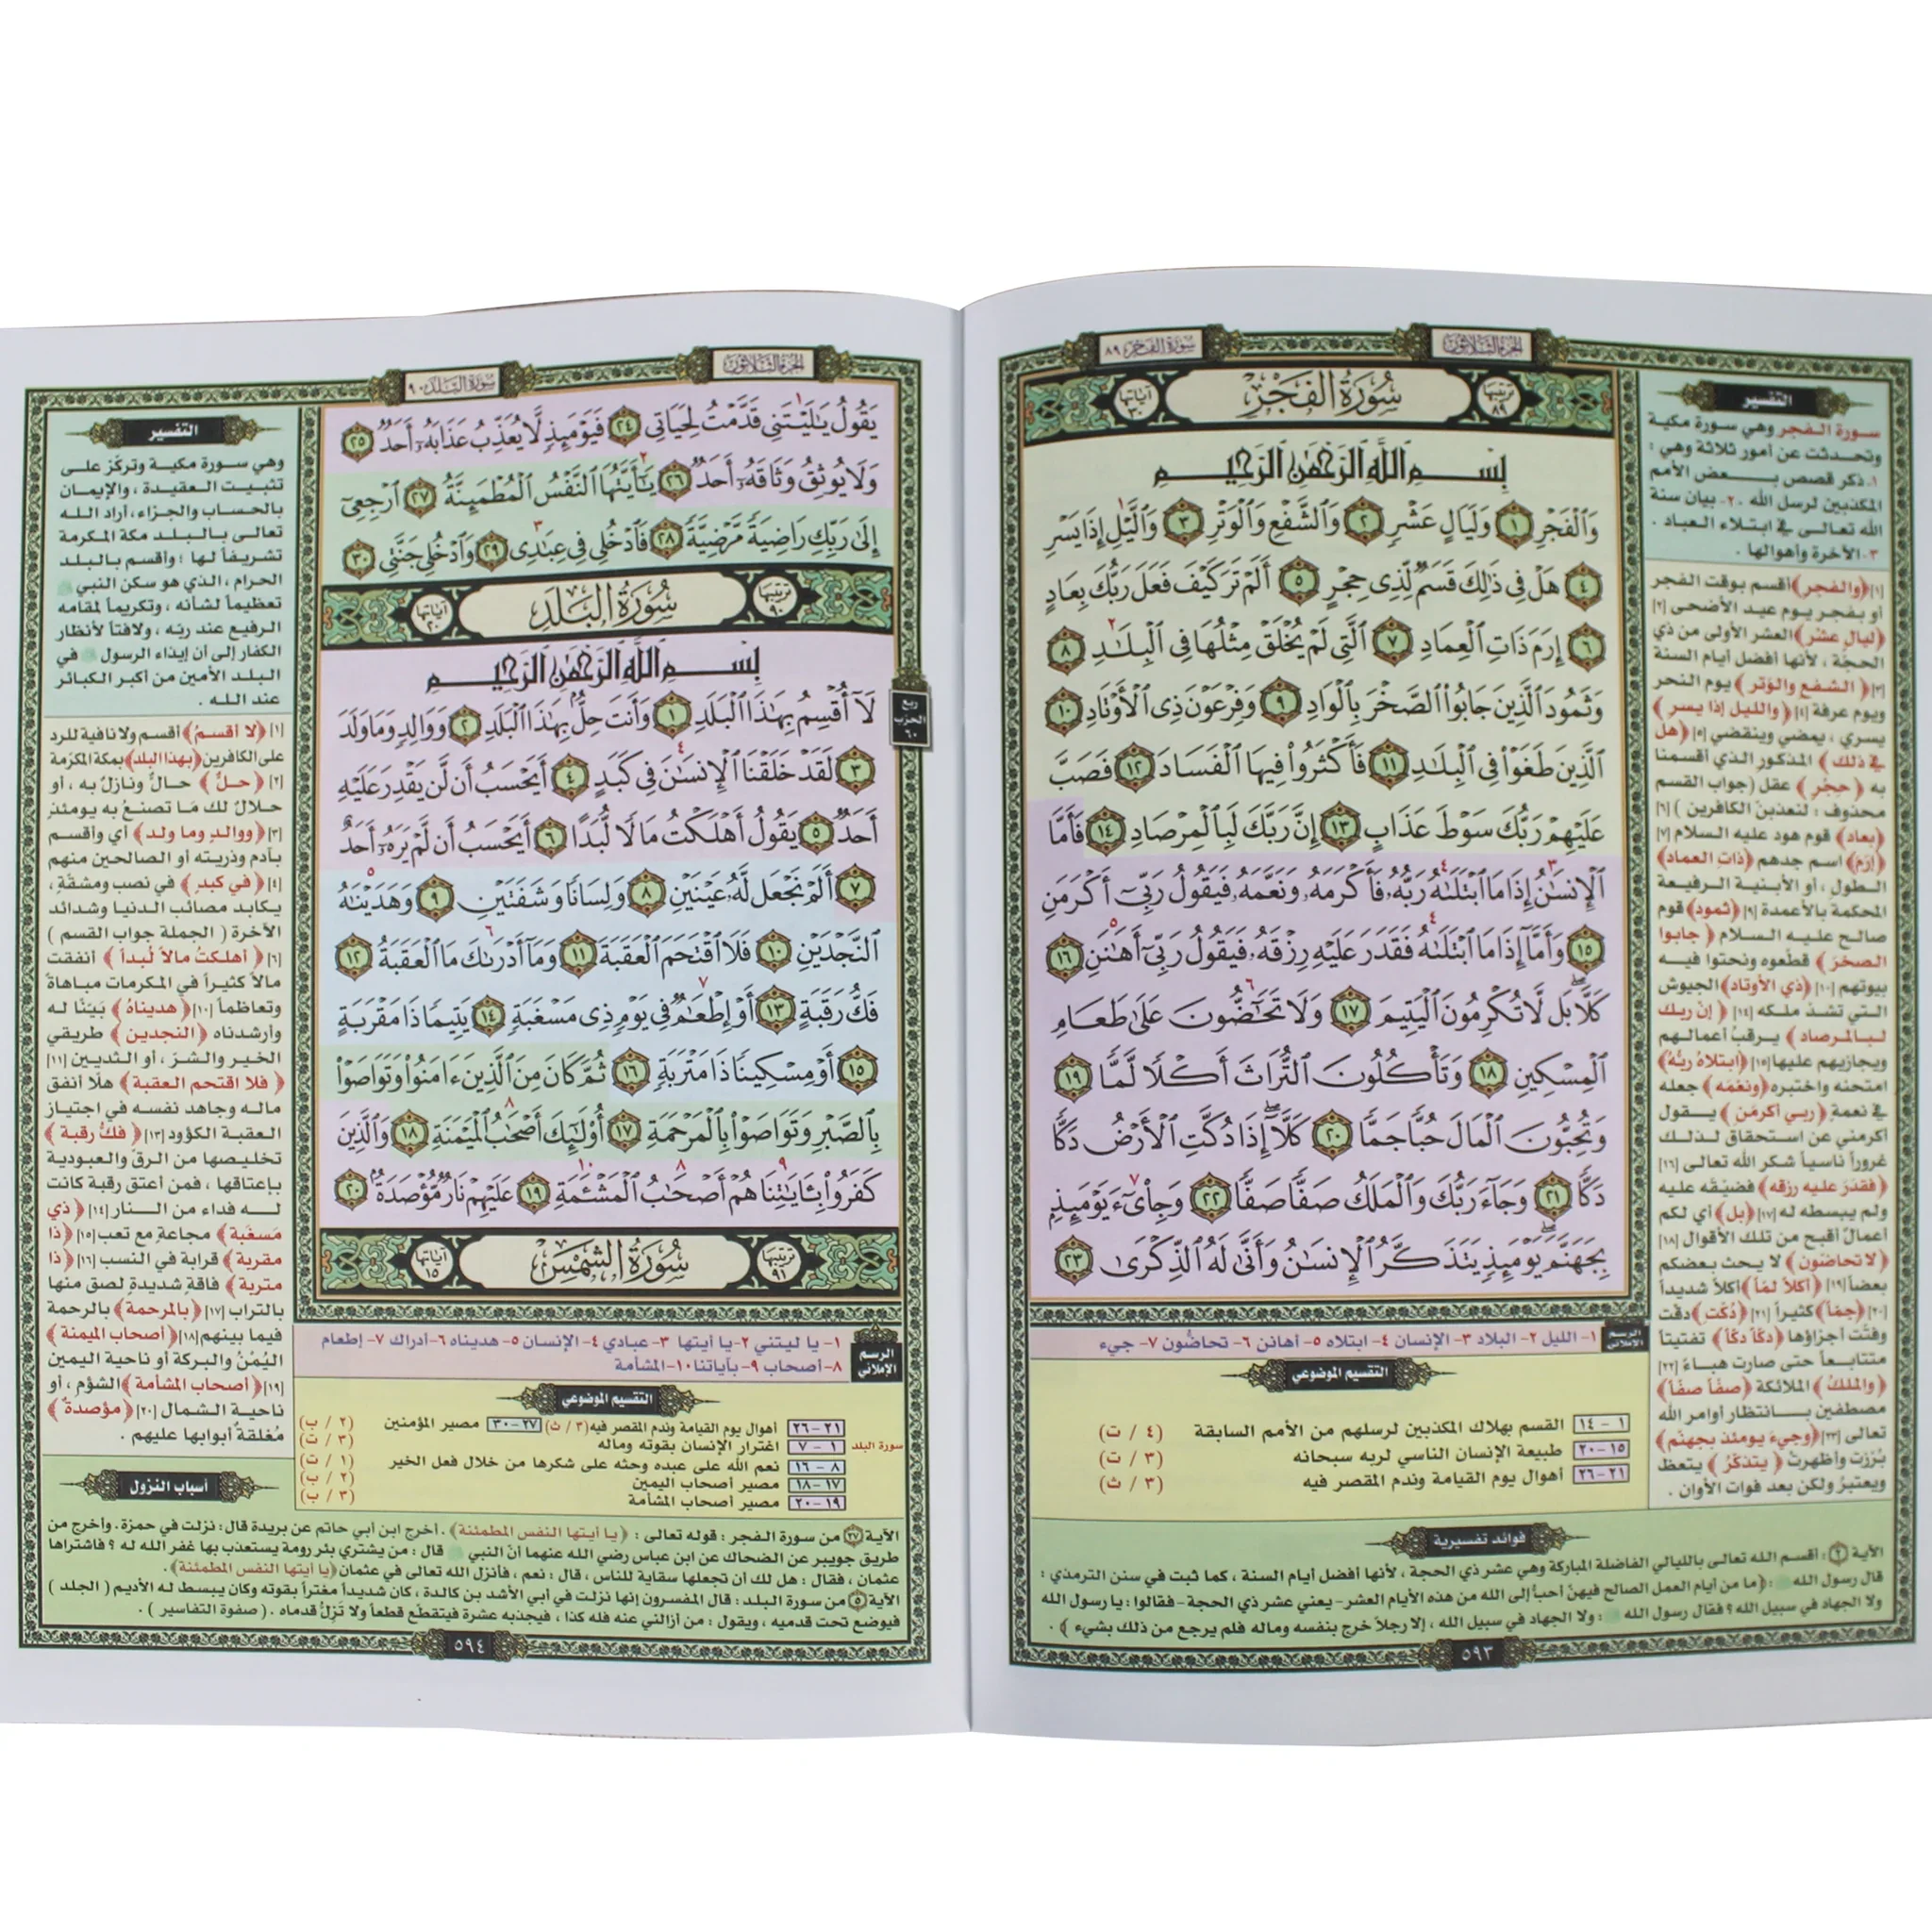 سورة الفجر ٨٩
الجزء الثلاثون
ترتيبها ٨٩
سُورَةُ الفَجْرِ
آياتها ٣٠
بِسْمِ ٱللَّهِ ٱلرَّحْمَٰنِ ٱلرَّحِيمِ
وَٱلْفَجْرِ ١ وَلَيَالٍ عَشْرٍ ٢ وَٱلشَّفْعِ وَٱلْوَتْرِ ٣ وَٱلَّيْلِ إِذَا يَسْرِ
٤ هَلْ فِى ذَٰلِكَ قَسَمٌ لِّذِى حِجْرٍ ٥ أَلَمْ تَرَ كَيْفَ فَعَلَ رَبُّكَ بِعَادٍ
٦ إِرَمَ ذَاتِ ٱلْعِمَادِ ٧ ٱلَّتِى لَمْ يُخْلَقْ مِثْلُهَا فِى ٱلْبِلَٰدِ ٨
وَثَمُودَ ٱلَّذِينَ جَابُوا۟ ٱلصَّخْرَ بِٱلْوَادِ ٩ وَفِرْعَوْنَ ذِى ٱلْأَوْتَادِ ١٠
ٱلَّذِينَ طَغَوْا۟ فِى ٱلْبِلَٰدِ ١١ فَأَكْثَرُوا۟ فِيهَا ٱلْفَسَادَ ١٢ فَصَبَّ
عَلَيْهِمْ رَبُّكَ سَوْطَ عَذَابٍ ١٣ إِنَّ رَبَّكَ لَبِٱلْمِرْصَادِ ١٤ فَأَمَّا
ٱلْإِنسَٰنُ إِذَا مَا ٱبْتَلَىٰهُ رَبُّهُۥ فَأَكْرَمَهُۥ وَنَعَّمَهُۥ فَيَقُولُ رَبِّىٓ أَكْرَمَنِ
١٥ وَأَمَّآ إِذَا مَا ٱبْتَلَىٰهُ فَقَدَرَ عَلَيْهِ رِزْقَهُۥ فَيَقُولُ رَبِّىٓ أَهَٰنَنِ ١٦
كَلَّا بَل لَّا تُكْرِمُونَ ٱلْيَتِيمَ ١٧ وَلَا تَحَٰٓضُّونَ عَلَىٰ طَعَامِ
ٱلْمِسْكِينِ ١٨ وَتَأْكُلُونَ ٱلتُّرَاثَ أَكْلًا لَّمًّا ١٩
وَتُحِبُّونَ ٱلْمَالَ حُبًّا جَمًّا ٢٠ كَلَّآ إِذَا دُكَّتِ ٱلْأَرْضُ دَكًّا
دَكًّا ٢١ وَجَآءَ رَبُّكَ وَٱلْمَلَكُ صَفًّا صَفًّا ٢٢ وَجِا۟ىٓءَ يَوْمَئِذٍۭ
بِجَهَنَّمَ يَوْمَئِذٍ يَتَذَكَّرُ ٱلْإِنسَٰنُ وَأَنَّىٰ لَهُ ٱلذِّكْرَىٰ ٢٣
التفسير
سورة الفجر وهي سورة مكية
وتحدثت عن أمور ثلاثة وهي :
١. ذكر قصص بعض الأمم
المكذبين لرسل الله . ٢- بيان سنة
الله تعالى في ابتلاء العباد .
٣- الآخرة وأهوالها .
[١] ﴿والفجر﴾ أقسم بوقت الفجر
أو بفجر يوم عيد الأضحى [٢]
﴿ليال عشر﴾ العشر الأولى من ذي
الحجة ، لأنها أفضل أيام السنة
[٣] ﴿الشفع والوتر﴾ يوم النحر
ويوم عرفة [٤] ﴿والليل إذا يسر﴾
يسري ، يمضي وينقضي [٥] ﴿هل
في ذلك﴾ المذكور الذي أقسمنا
به ﴿حجر﴾ عقل (جواب القسم
محذوف : لنعذبن الكافرين ) [٦]
﴿بعاد﴾ قوم هود عليه السلام [٧]
﴿إرم﴾ اسم جدهم ﴿ذات العماد﴾
الطول ، أو الأبنية الرفيعة
المحكمة بالأعمدة [٩] ﴿ثمود﴾ قوم
صالح عليه السلام ﴿جابوا
الصخر﴾ قطعوه ونحتوا فيه
بيوتهم [١٠] ﴿ذي الأوتاد﴾ الجيوش
التي تشد ملكه [١٤] ﴿إن ربك
لبالمرصاد﴾ يرقب أعمالهم
ويجازيهم عليها [١٥] ﴿ابتلاه ربه﴾
امتحنه واختبره ﴿ونعمه﴾ جعله
في نعمة ﴿ربي أكرمن﴾ يقول
أكرمني عن استحقاق لذلك
غروراً ناسياً شكر الله تعالى [١٦]
﴿فقدر عليه رزقه﴾ فضيقه عليه
ولم يبسطه له [١٧] ﴿بل﴾ أي لكم
أعمال أقبح من تلك الأقوال [١٨]
﴿لا تحاضون﴾ لا يحث بعضكم
بعضاً [١٩] ﴿أكلاً لماً﴾ أكلاً شديداً
[٢٠] ﴿جماً﴾ كثيراً [٢١] ﴿دكت﴾ دقت
وفتت أجزاؤها ﴿دكاً دكاً﴾ تفتيتاً
متتابعاً حتى صارت هباء [٢٢]
﴿والملك﴾ الملائكة ﴿صفاً صفاً﴾
مصطفين بانتظار أوامر الله
تعالى [٢٣] ﴿وجيء يومئذ بجهنم﴾
برزت وأظهرت ﴿يتذكر﴾ يتعظ
ويعتبر ولكن بعد فوات الأوان .
الرسم الإملائي
١- الليل ٢- البلاد ٣- الإنسان ٤- ابتلاه ٥- أهانن ٦- تحاضون ٧- جيء
التقسيم الموضوعي
١ - ١٤ القسم بهلاك المكذبين لرسلهم من الأمم السابقة (٤ / ت)
١٥-٢٠ طبيعة الإنسان الناسي لربه سبحانه (٣ / ت)
٢١-٢٦ أهوال يوم القيامة وندم المقصر فيه (٣ / ث)
فوائد تفسيرية
الآية ٢ : أقسم الله تعالى بالليالي الفاضلة المباركة وهي عشر ذي الحجة ، لأنها أفضل أيام السنة ، كما ثبت في سنن الترمذي :
قال رسول الله ﷺ : (ما من أيام العمل الصالح فيهن أحب إلى الله من هذه الأيام العشر - يعني عشر ذي الحجة - فقالوا : يا رسول الله
ولا الجهاد في سبيل الله ؟ فقال رسول الله ﷺ : ولا الجهاد في سبيل الله ، إلا رجلاً خرج بنفسه وماله فلم يرجع من ذلك بشيء ) .
٥٩٣
سورة البلد ٩٠
الجزء الثلاثون
يَقُولُ يَٰلَيْتَنِى قَدَّمْتُ لِحَيَاتِى ٢٤ فَيَوْمَئِذٍ لَّا يُعَذِّبُ عَذَابَهُۥٓ أَحَدٌ ٢٥
وَلَا يُوثِقُ وَثَاقَهُۥٓ أَحَدٌ ٢٦ يَٰٓأَيَّتُهَا ٱلنَّفْسُ ٱلْمُطْمَئِنَّةُ ٢٧ ٱرْجِعِىٓ
إِلَىٰ رَبِّكِ رَاضِيَةً مَّرْضِيَّةً ٢٨ فَٱدْخُلِى فِى عِبَٰدِى ٢٩ وَٱدْخُلِى جَنَّتِى ٣٠
ترتيبها ٩٠
سُورَةُ البَلَدِ
آياتها ٢٠
بِسْمِ ٱللَّهِ ٱلرَّحْمَٰنِ ٱلرَّحِيمِ
لَآ أُقْسِمُ بِهَٰذَا ٱلْبَلَدِ ١ وَأَنتَ حِلٌّۢ بِهَٰذَا ٱلْبَلَدِ ٢ وَوَالِدٍ وَمَا وَلَدَ
٣ لَقَدْ خَلَقْنَا ٱلْإِنسَٰنَ فِى كَبَدٍ ٤ أَيَحْسَبُ أَن لَّن يَقْدِرَ عَلَيْهِ
أَحَدٌ ٥ يَقُولُ أَهْلَكْتُ مَالًا لُّبَدًا ٦ أَيَحْسَبُ أَن لَّمْ يَرَهُۥٓ أَحَدٌ
٧ أَلَمْ نَجْعَل لَّهُۥ عَيْنَيْنِ ٨ وَلِسَانًا وَشَفَتَيْنِ ٩ وَهَدَيْنَٰهُ
ٱلنَّجْدَيْنِ ١٠ فَلَا ٱقْتَحَمَ ٱلْعَقَبَةَ ١١ وَمَآ أَدْرَىٰكَ مَا ٱلْعَقَبَةُ ١٢
فَكُّ رَقَبَةٍ ١٣ أَوْ إِطْعَٰمٌ فِى يَوْمٍ ذِى مَسْغَبَةٍ ١٤ يَتِيمًا ذَا مَقْرَبَةٍ
١٥ أَوْ مِسْكِينًا ذَا مَتْرَبَةٍ ١٦ ثُمَّ كَانَ مِنَ ٱلَّذِينَ ءَامَنُوا۟ وَتَوَاصَوْا۟
بِٱلصَّبْرِ وَتَوَاصَوْا۟ بِٱلْمَرْحَمَةِ ١٧ أُو۟لَٰٓئِكَ أَصْحَٰبُ ٱلْمَيْمَنَةِ ١٨ وَٱلَّذِينَ
كَفَرُوا۟ بِـَٔايَٰتِنَا هُمْ أَصْحَٰبُ ٱلْمَشْـَٔمَةِ ١٩ عَلَيْهِمْ نَارٌ مُّؤْصَدَةٌۢ ٢٠
ترتيبها ٩١
سُورَةُ الشَّمْسِ
آياتها ١٥
ربع الحزب ٦٠
التفسير
وهي سورة مكية وتركز على
تثبيت العقيدة ، والإيمان
بالحساب والجزاء، أراد الله
تعالى بالبلد مكة المكرمة
تشريفاً لها ؛ وأقسم بالبلد
الحرام ، الذي هو سكن النبي ﷺ
تعظيماً لشأنه ، وتكريماً لمقامه
الرفيع عند ربه، ولافتاً لأنظار
الكفار إلى أن إيذاء الرسول ﷺ في
البلد الأمين من أكبر الكبائر
عند الله .
[١] ﴿لا أقسم﴾ أقسم ولا نافية للرد
على الكافرين ﴿بهذا البلد﴾ بمكة المكرمة
[٢] ﴿حل﴾ حال ونازل به ، أو
حلال لك ما تصنع به يومئذ
[٣] ﴿ووالد وما ولد﴾ أي وأقسم
بآدم وذريته أو الصالحين منهم
[٤] ﴿في كبد﴾ في نصب ومشقة ،
يكابد مصائب الدنيا وشدائد
الآخرة ( الجملة جواب القسم )
[٦] ﴿أهلكت مالاً لبداً﴾ أنفقت
مالاً كثيراً في المكرمات مباهاة
وتعاظماً [١٠] ﴿هديناه﴾ بينا له
وأرشدناه ﴿النجدين﴾ طريقي
الخير والشر ، أو الثديين [١١]
﴿فلا اقتحم العقبة﴾ هلا أنفق
ماله وجاهد نفسه في اجتياز
العقبة الكؤود [١٣] ﴿فك رقبة﴾
تخليصها من الرق والعبودية
بإعتاقها ، فمن أعتق رقبة كانت
له فداء من النار [١٤] ﴿ذي
مسغبة﴾ مجاعة مع تعب [١٥] ﴿ذا
مقربة﴾ قرابة في النسب [١٦] ﴿ذا
متربة﴾ فاقة شديدة لصق منها
بالتراب [١٧] ﴿بالمرحمة﴾ بالرحمة
فيما بينهم [١٨] ﴿أصحاب الميمنة﴾
اليمن والبركة أو ناحية اليمين
[١٩] ﴿أصحاب المشأمة﴾ الشؤم ، أو
ناحية الشمال [٢٠] ﴿مؤصدة﴾
مغلقة أبوابها عليهم .
الرسم الإملائي
١- يا ليتني ٢- يا أيتها ٣- عبادي ٤- الإنسان ٥- هديناه ٦- أدراك ٧- إطعام
٨- أصحاب ٩- بآياتنا ١٠- المشأمة
التقسيم الموضوعي
٢١-٢٦ أهوال يوم القيامة وندم المقصر فيه (٣ / ث) ٢٧-٣٠ مصير المؤمنين (٢ / ب)
سورة البلد ١ - ٧ اغترار الإنسان بقوته وماله (٣ / ت)
٨ - ١٦ نعم الله على عبده وحثه على شكرها من خلال فعل الخير (١ / ت)
١٧-١٨ مصير أصحاب اليمين (٢ / ب)
١٩-٢٠ مصير أصحاب المشأمة (٣ / ب)
أسباب النزول
الآية ٢٧ من سورة الفجر : قوله تعالى : ﴿يا أيتها النفس المطمئنة﴾ . أخرج ابن أبي حاتم عن بريدة قال : نزلت في حمزة. وأخرج من
طريق جويبر عن الضحاك عن ابن عباس رضي الله عنهما أن النبي ﷺ قال : من يشتري بئر رومة يستعذب بها غفر الله له ؟ فاشتراها
عثمان ، فقال : هل لك أن تجعلها سقاية للناس ، قال : نعم ، فأنزل الله تعالى في عثمان ﴿يا أيتها النفس المطمئنة﴾ .
الآية ٥ من سورة البلد : قال المفسرون إنها نزلت في أبي الأشد بن كالدة ، كان شديداً مغتراً بقوته وكان يبسط له الأديم ( الجلد )
فيوضع تحت قدميه ، ويقول : من أزالني عنه فله كذا ، فيجذبه عشرة فيتقطع قطعاً ولا تزل قدماه . ( صفوة التفاسير ) .
٥٩٤